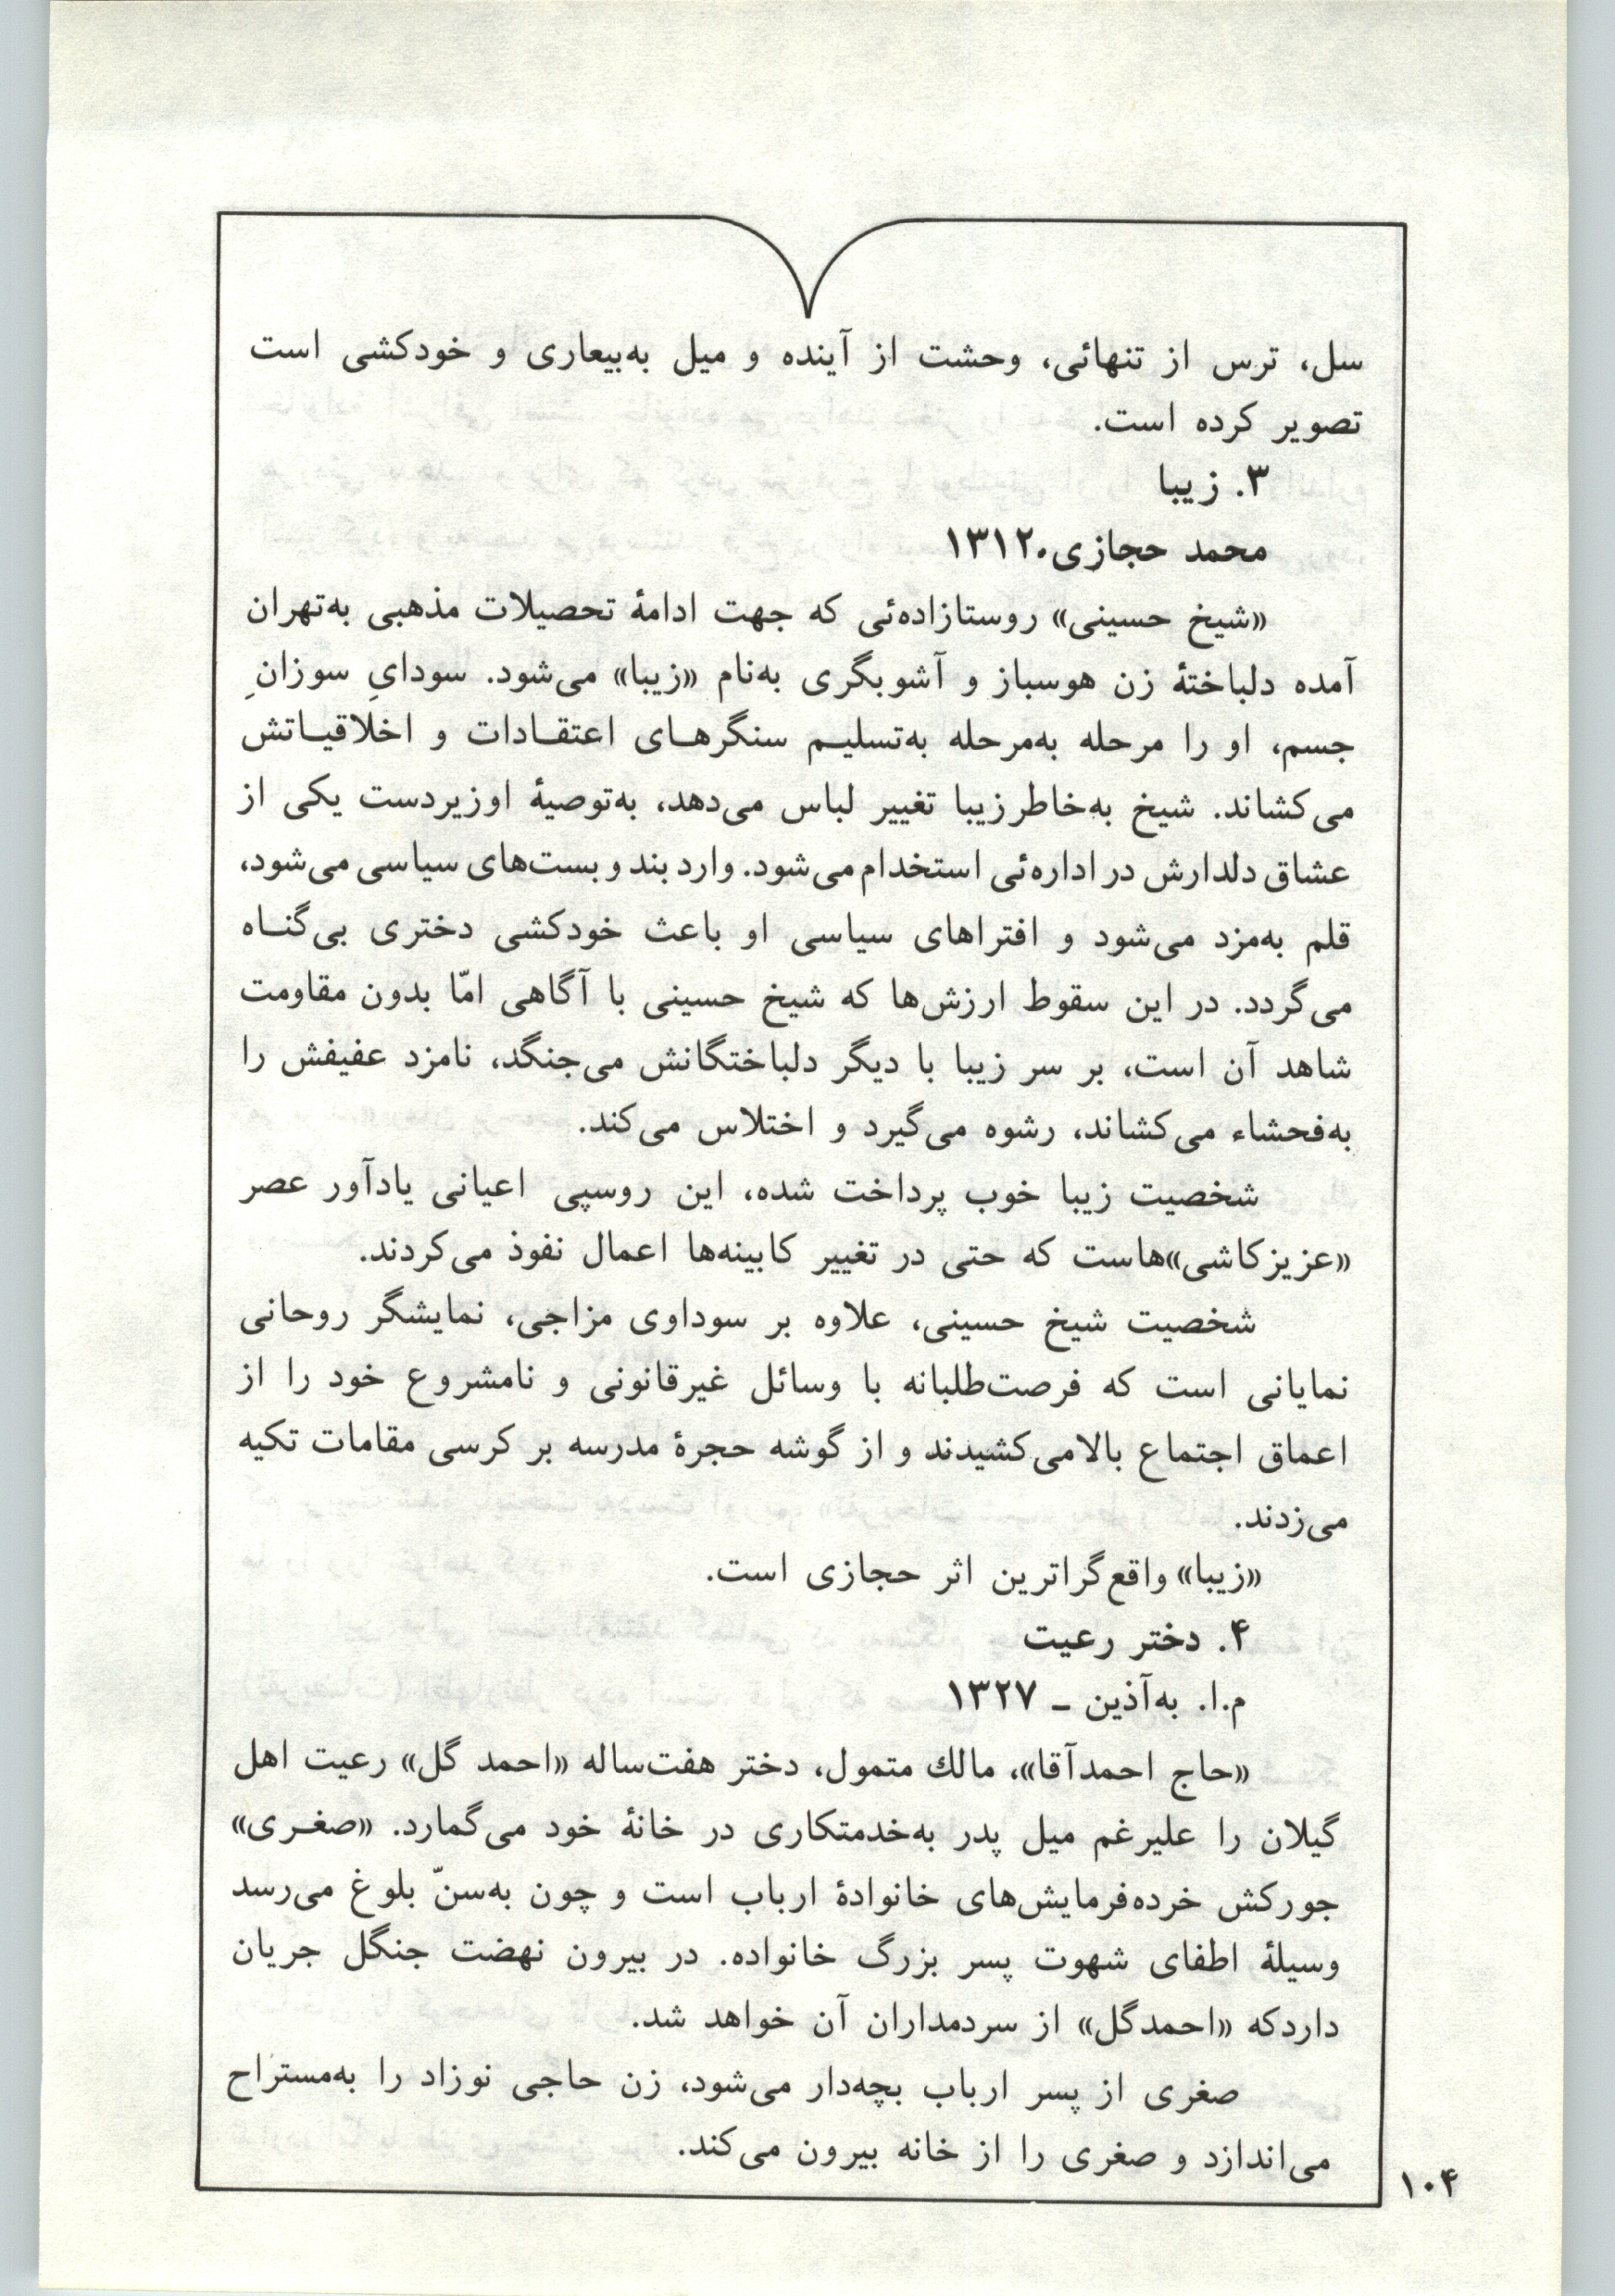 سل، ترس از تنهائی، وحشت از آینده و میل به‌بیعاری و خودکشی است
تصویر کرده است.
۳. زیبا
محمد حجازی.۱۳۱۲
«شیخ حسینی» روستازاده‌ئی که جهت ادامهٔ تحصیلات مذهبی به‌تهران
آمده دلباختهٔ زن هوسباز و آشوبگری به‌نام «زیبا» می‌شود. سودایِ سوزانِ
جسم، او را مرحله به‌مرحله به‌تسلیـم سنگرهـای اعتقـادات و اخلاقیـاتش
می‌کشاند. شیخ به‌خاطر زیبا تغییر لباس می‌دهد، به‌توصیهٔ او زیردست یکی از
عشاق دلدارش در اداره‌ئی استخدام می‌شود. وارد بند و بست‌های سیاسی می‌شود،
قلم به‌مزد می‌شود و افتراهای سیاسی او باعث خودکشی دختری بی‌گنـاه
می‌گردد. در این سقوط ارزش‌ها که شیخ حسینی با آگاهی امّا بدون مقاومت
شاهد آن است، بر سر زیبا با دیگر دلباختگانش می‌جنگد، نامزد عفیفش را
به‌فحشاء می‌کشاند، رشوه می‌گیرد و اختلاس می‌کند.
شخصیت زیبا خوب پرداخت شده، این روسپی اعیانی یادآور عصر
«عزیزکاشی»هاست که حتی در تغییر کابینه‌ها اعمال نفوذ می‌کردند.
شخصیت شیخ حسینی، علاوه بر سوداوی مزاجی، نمایشگر روحانی
نمایانی است که فرصت‌طلبانه با وسائل غیرقانونی و نامشروع خود را از
اعماق اجتماع بالا می‌کشیدند و از گوشه حجرهٔ مدرسه بر کرسی مقامات تکیه
می‌زدند.
«زیبا» واقع‌گراترین اثر حجازی است.
۴. دختر رعیت
م.ا. به‌آذین ـ ۱۳۲۷
«حاج احمدآقا»، مالك متمول، دختر هفت‌ساله «احمد گل» رعیت اهل
گیلان را علیرغم میل پدر به‌خدمتکاری در خانهٔ خود می‌گمارد. «صغـری»
جورکش خرده‌فرمایش‌های خانوادهٔ ارباب است و چون به‌سنّ بلوغ می‌رسد
وسیلهٔ اطفای شهوت پسر بزرگ خانواده. در بیرون نهضت جنگل جریان
داردکه «احمدگل» از سردمداران آن خواهد شد.
صغری از پسر ارباب بچه‌دار می‌شود، زن حاجی نوزاد را به‌مستراح
می‌اندازد و صغری را از خانه بیرون می‌کند.
۱۰۴